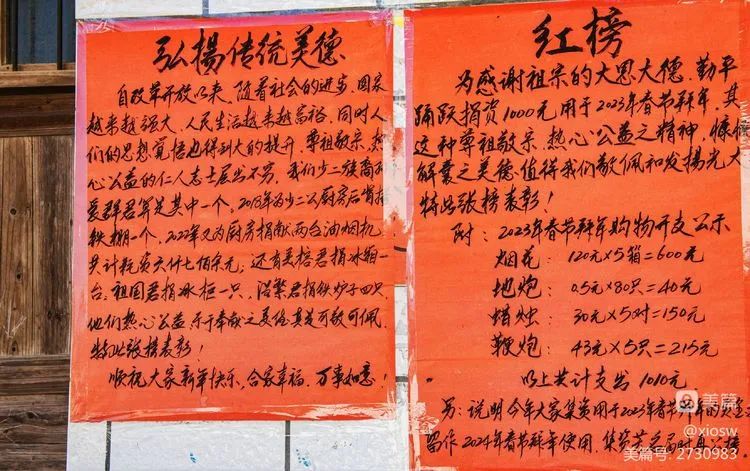 弘揚传统美德
自改革开放以来，随着社会的进步，国家
越来越强大，人民生活越来越富裕，同时人
们的思想觉悟也得到大的提升，尊祖敬宗，热
心公益的仁人志士层出不穷，我们少二族裔
爱群君算是其中一个，2018年为少二公厨房后背捐
铁棚一个，2022年又为厨房捐献两台油烟机，
共计耗资六仟七佰余元；还有美榕君捐冰箱一
台，祖国君捐冰柜一只，君捐铁炉子四只，
他们热心公益，乐于奉献之美德真是可敬可佩，
特此张榜表彰！
顺祝大家新年快乐、合家幸福、万事如意！
红榜
为感谢祖宗的大恩大德，勤平
踊跃捐资1000元用于2023年春节拜年，其
这种尊祖敬宗、热心公益之精神，慷慨
解囊之美德，值得我们敬佩和发揚光大
特此张榜表彰！
附：2023年春节拜年购物开支公示
烟花：120元×5箱=600元
地炮：0.5元×80只=40元
蜡烛：30元×5对=150元
鞭炮：43元×5只=215元
以上共计支出1010元
另：说明今年大家集资用于2023年春节拜年的资金
留作2024年春节拜年使用，集资芳名届时再公榜
美篇
@xiosw
美篇号：2730983